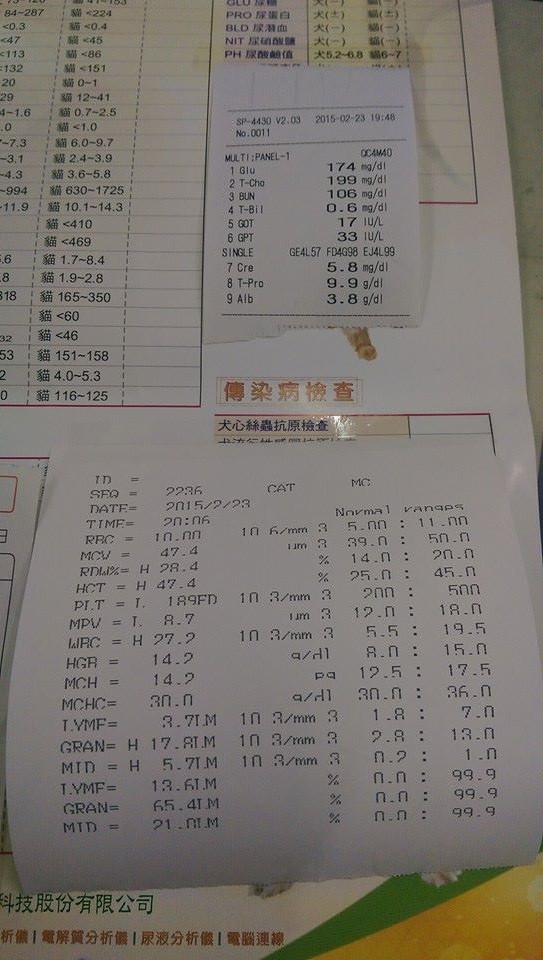 73~126 貓 41~153
84~287 貓 <224
<0.3 貓 <0.4
<47 貓 <45
<113 貓 <86
<132 貓 <151
20 貓 0~1
29 貓 12~41
4~1.6 貓 0.7~2.5
.0 貓 <1.0
~7.3 貓 6.0~9.7
~3.1 貓 2.4~3.9
~4.3 貓 3.6~5.8
~994 貓 630~1725
~11.9 貓 10.1~14.3
貓 <410
貓 <469
.6 貓 1.7~8.4
.8 貓 1.9~2.8
318 貓 165~350
貓 <60
32 貓 <46
53 貓 151~158
2 貓 4.0~5.3
0 貓 116~125
GLU 尿糖 犬(−) 貓(−)
PRO 尿蛋白 犬(±) 貓(±)
BLD 尿潛血 犬(−) 貓(−)
NIT 尿硝酸鹽 犬(−) 貓(−)
PH 尿酸鹼值 犬5.2~6.8 貓6~7
SP-4430 V2.03 2015-02-23 19:48
No.0011
MULTI:PANEL-1 QC4M40
1 Glu 174 mg/dl
2 T-Cho 199 mg/dl
3 BUN 106 mg/dl
4 T-Bil 0.6 mg/dl
5 GOT 17 IU/L
6 GPT 33 IU/L
SINGLE GE4L57 FD4G98 EJ4L99
7 Cre 5.8 mg/dl
8 T-Pro 9.9 g/dl
9 Alb 3.8 g/dl
傳染病檢查
犬心絲蟲抗原檢查
ID =
SEQ = 2236 CAT MC
DATE= 2015/2/23
TIME= 20:06 Normal ranges
RBC = 10.00 10 6/mm 3 5.00 : 11.00
MCV = 47.4 um 3 39.0 : 50.0
RDW%= H 28.4 % 14.0 : 20.0
HCT = H 47.4 % 25.0 : 45.0
PLT = L 189FD 10 3/mm 3 200 : 500
MPV = L 8.7 um 3 12.0 : 18.0
WBC = H 27.2 10 3/mm 3 5.5 : 19.5
HGB = 14.2 g/dl 8.0 : 15.0
MCH = 14.2 pg 12.5 : 17.5
MCHC= 30.0 g/dl 30.0 : 36.0
LYMF= 3.7LM 10 3/mm 3 1.8 : 7.0
GRAN= H 17.8LM 10 3/mm 3 2.8 : 13.0
MID = H 5.7LM 10 3/mm 3 0.2 : 1.0
LYMF= 13.6LM % 0.0 : 99.9
GRAN= 65.4LM % 0.0 : 99.9
MID = 21.0LM % 0.0 : 99.9
科技股份有限公司
析儀 | 電解質分析儀 | 尿液分析儀 | 電腦連線